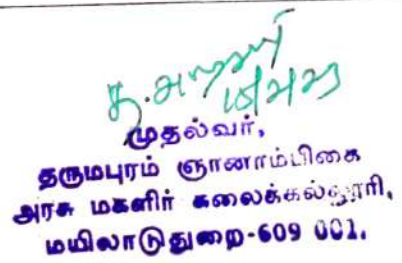 முதல்வர்,
தருமபுரம் ஞானாம்பிகை
அரசு மகளிர் கலைக்கல்லூரி,
மயிலாடுதுறை-609 001.